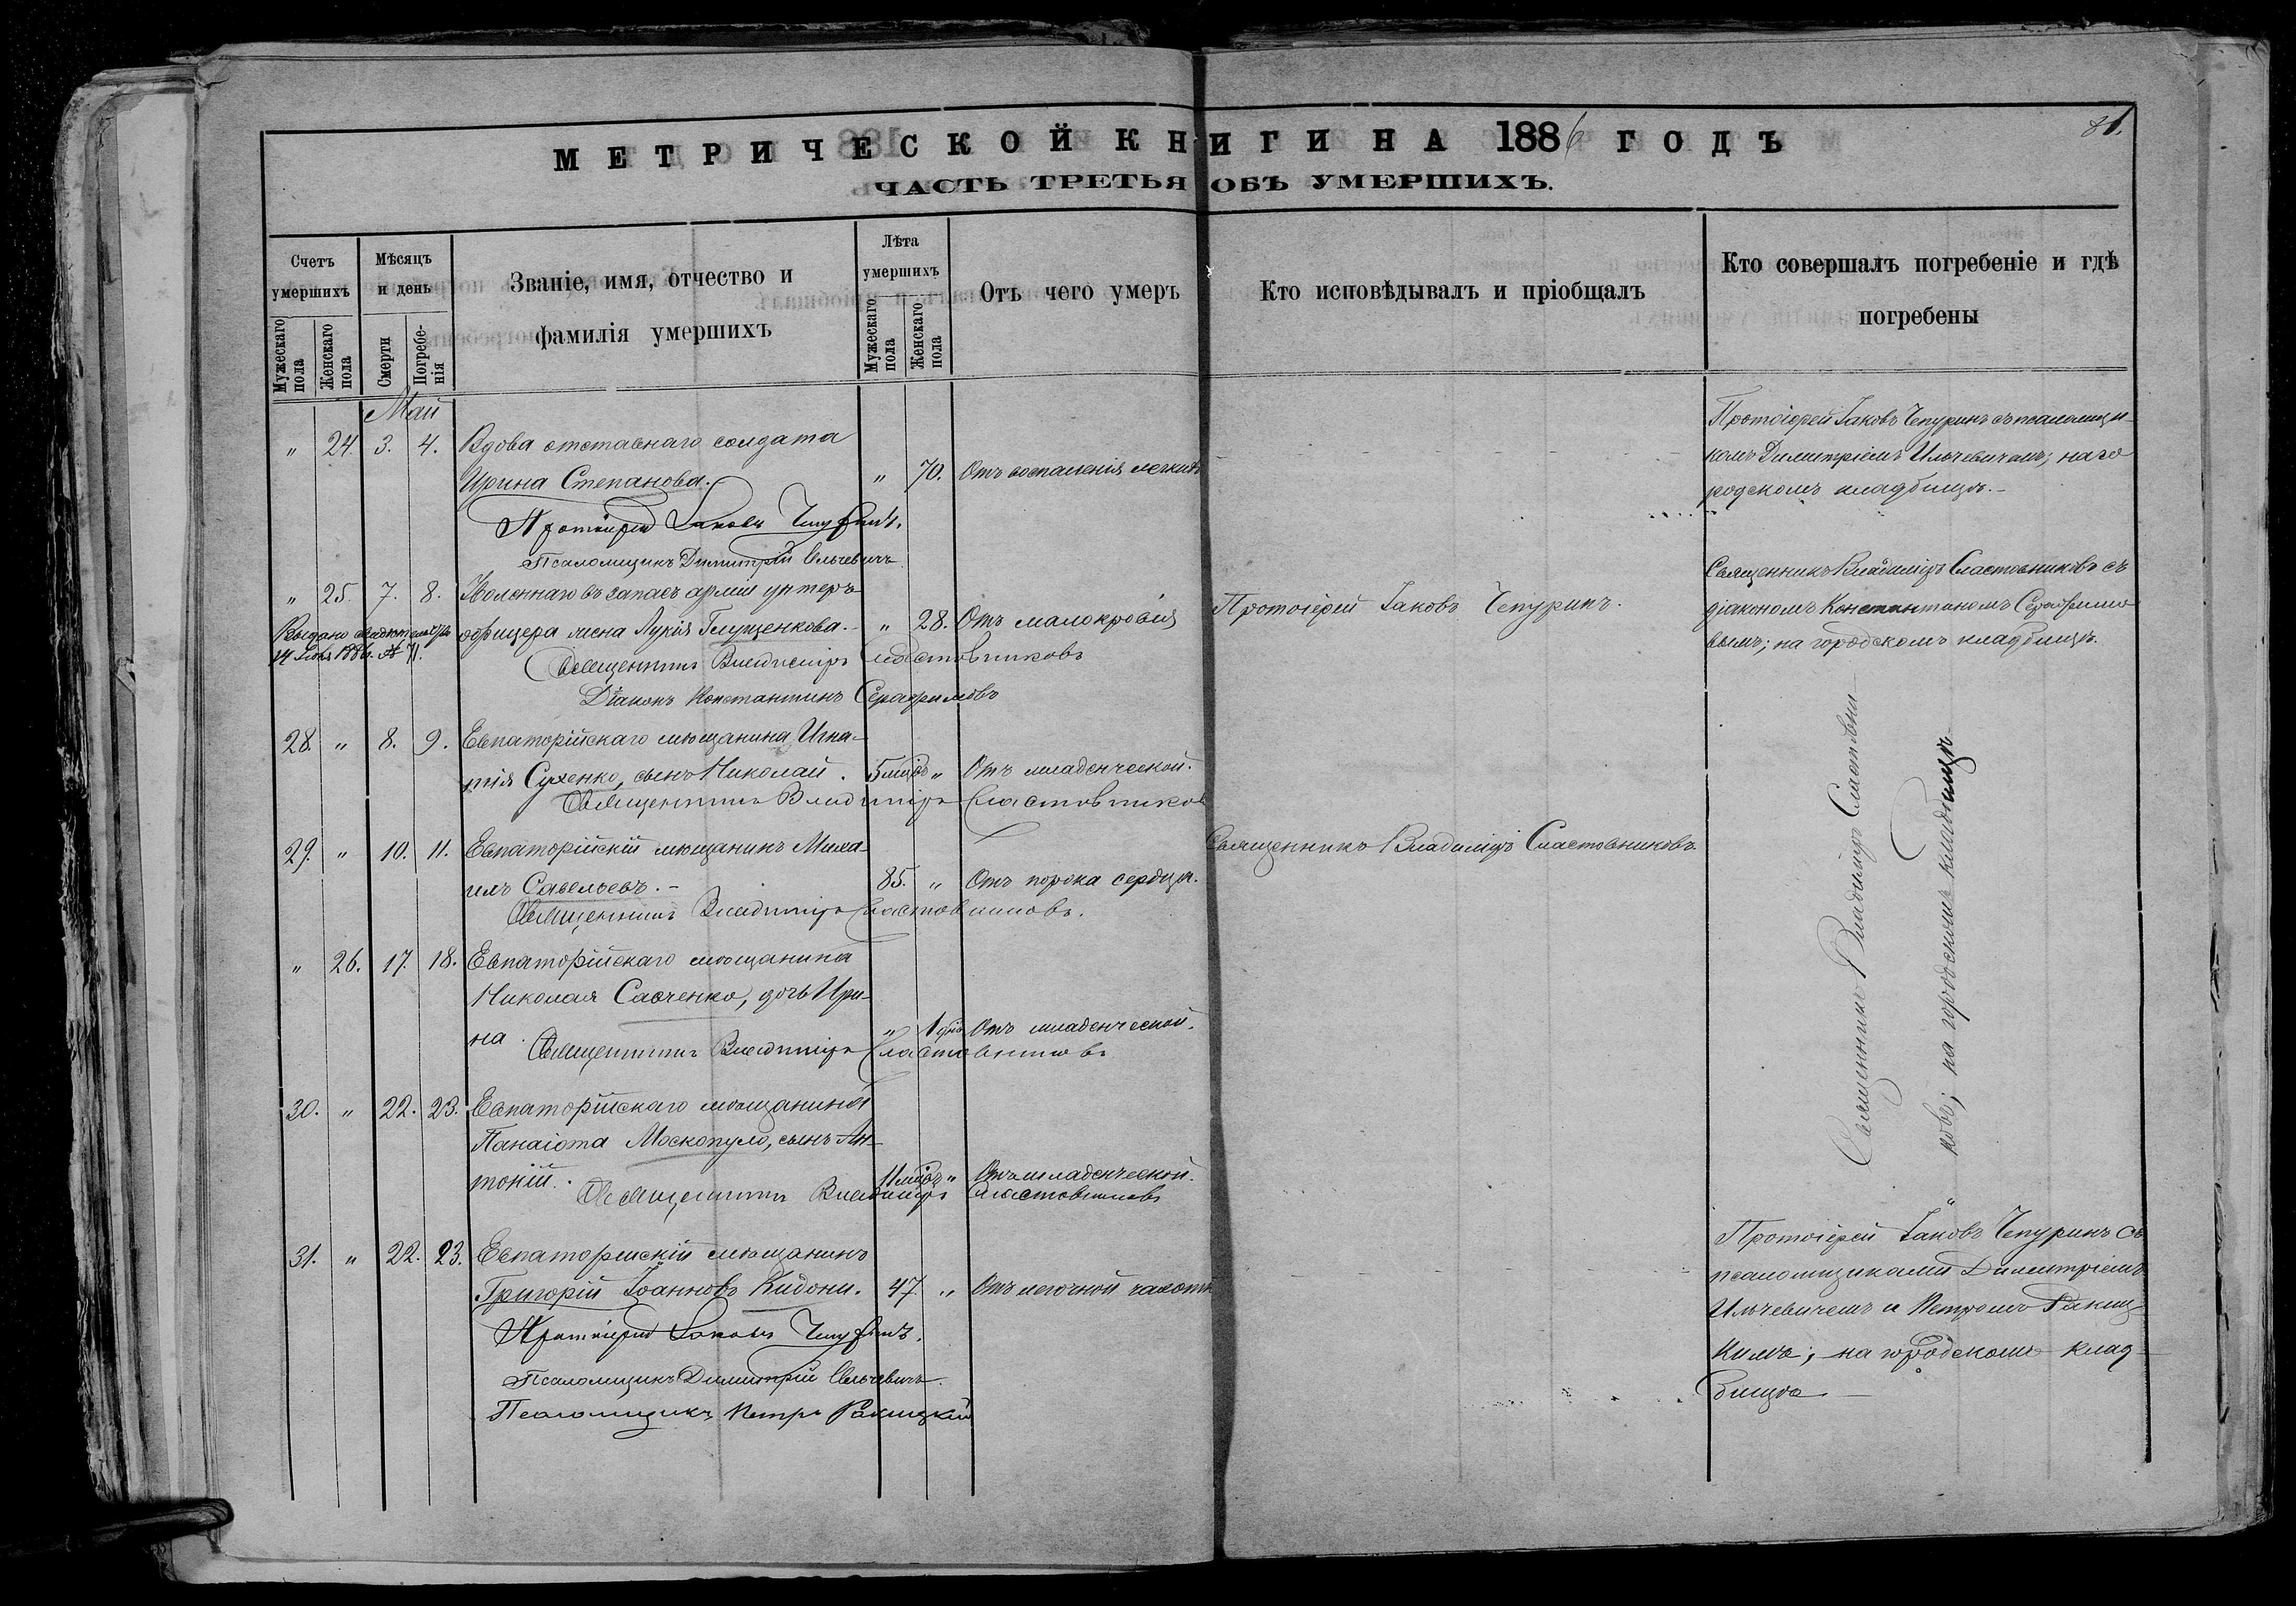 МЕТРИЧЕСКОЙ КНИГИ НА 1886 ГОДЪ
81.
ЧАСТЬ ТРЕТЬЯ ОБЪ УМЕРШИХЪ.
Счетъ умершихъ
Мужескаго пола
Женскаго пола
Мѣсяцъ и день
Смерти
Погребе-
нія
Званіе, имя, отчество и
фамилія умершихъ
Лѣта
умершихъ
Мужескаго пола
Женскаго пола
Отъ чего умеръ
Кто исповѣдывалъ и пріобщалъ
Кто совершалъ погребеніе и гдѣ
погребены
Май
" 24. 3. 4. Вдова отставнаго солдата
Ирина Степанова. " 70. Отъ воспаленія легкихъ
Протоіерей Іаковъ Чепуринъ.
Псаломщикъ Димитрій Ильчевичъ.
Протоіерей Іаковъ Чепуринъ съ псаломщи-
комъ Димитріемъ Ильчевичемъ; на го
родскомъ кладбищѣ.-
" 25. 7. 8. Уволеннаго въ запасъ арміи унтеръ-
офицера жена Лукія Глущенкова.- " 28. Отъ малокровія
Выдано свидѣтельство
14 1886. № 71.
Священникъ Владиміръ Сластовниковъ
Діаконъ Константинъ Серафимовъ
Протоіерей Іаковъ Чепуринъ.
Священникъ Владиміръ Сластовниковъ съ
діакономъ Константиномъ Серафимо-
вымъ; на городскомъ кладбищѣ.
28. " 8. 9. Евпаторійскаго мѣщанина Игна-
тія Сухенко, сынъ Николай. 5 мцѣ " Отъ младенческой.
Священникъ Владиміръ Сластовниковъ
29. " 10. 11. Евпаторійскій мѣщанинъ Миха-
илъ Савельевъ.- 85. " Отъ порока сердца.
Священникъ Владиміръ Сластовниковъ.
Священникъ Владиміръ Сластовниковъ.
" 26. 17. 18. Евпаторійскаго мѣщанина
Николая Савченко, дочь Ири-
на. " 1 дня Отъ младенческой.
Священникъ Владиміръ Сластовниковъ
30. " 22. 23. Евпаторійскаго мѣщанина
Панаіота Москопуло, сынъ Ан-
тоній. 11 мцѣ " Отъ младенческой.
Священникъ Владиміръ Сластовниковъ
Священникъ Владиміръ Сластовни-
ковъ; на городскомъ кладбищѣ
31. " 22. 23. Евпаторійскій мѣщанинъ
Григорій Іоанновъ Кидони. 47 " Отъ легочной чахотки
Протоіерей Іаковъ Чепуринъ.
Псаломщикъ Димитрій Ильчевичъ.
Псаломщикъ Петръ Ракицкій
Протоіерей Іаковъ Чепуринъ съ
псаломщиками Димитріемъ
Ильчевичемъ и Петромъ Ракиц-
кимъ; на городскомъ клад-
бищѣ.-